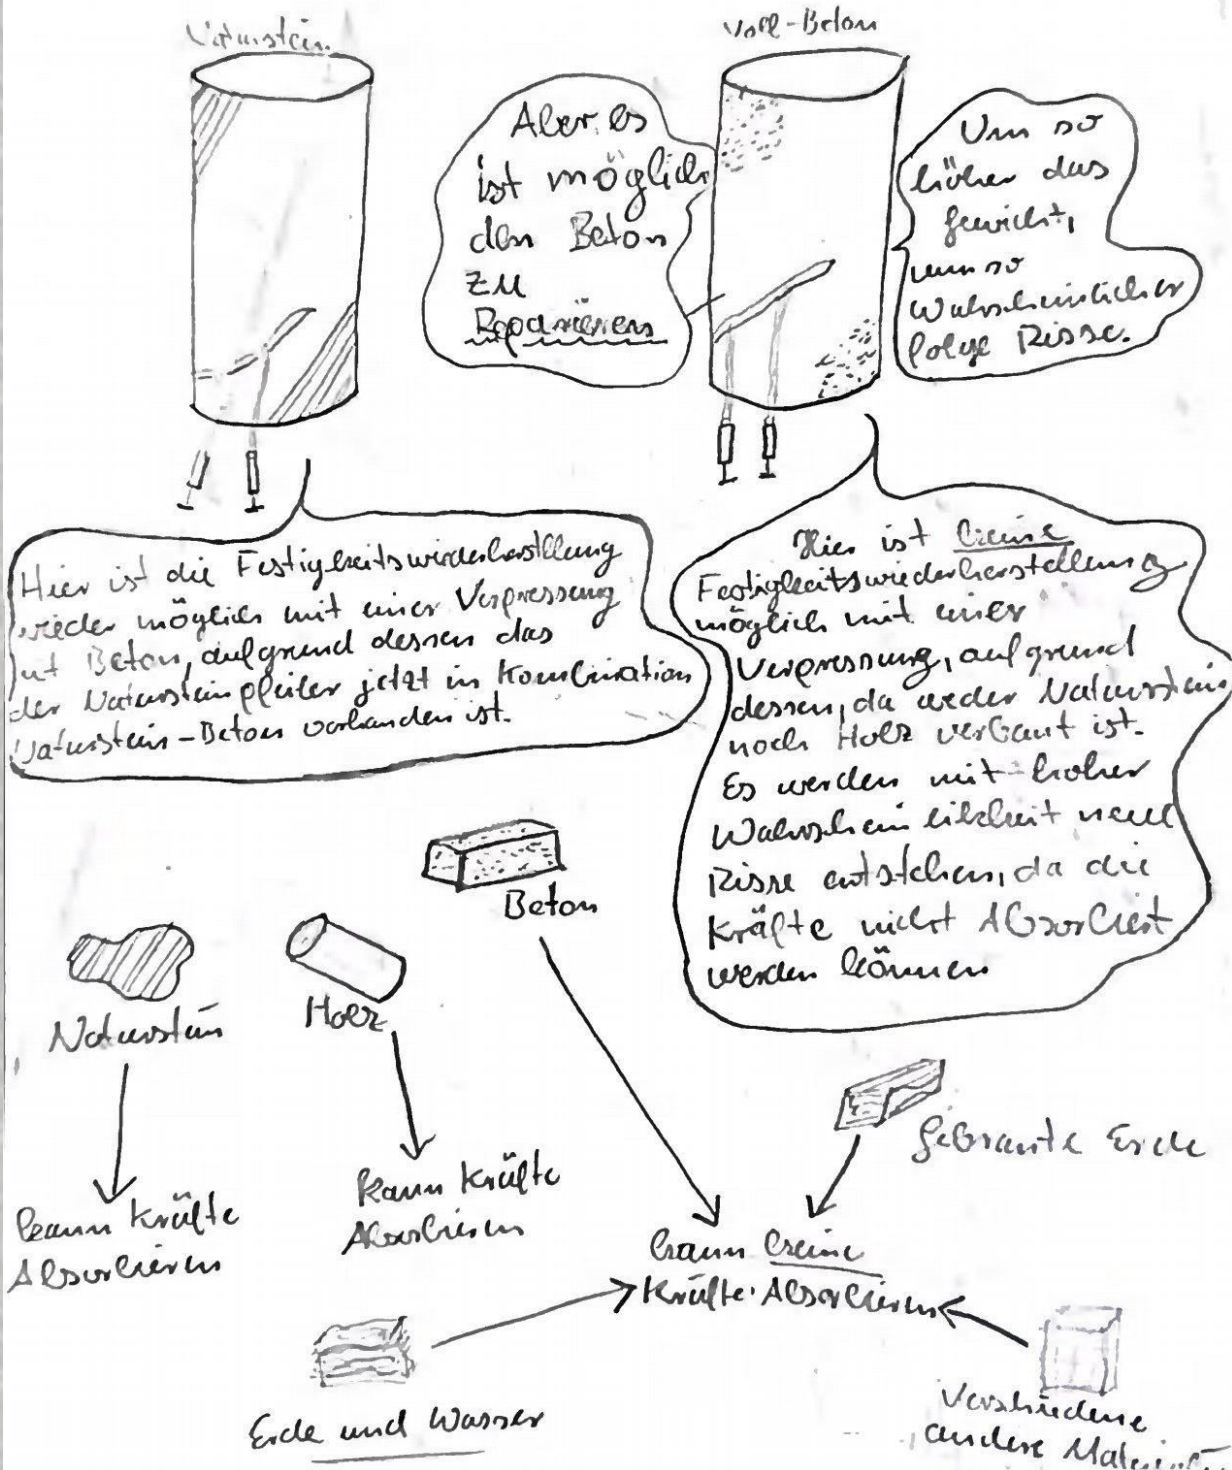 Naturstein
Voll-Beton
Aber es
ist möglich
den Beton
zu
Reparieren
Um so
höher das
Gewicht,
um so
Wahrscheinlicher
folge Risse.
Hier ist die Festigkeitswiederherstellung
wieder möglich mit einer Verpressung
mit Beton, aufgrund dessen das
der Natursteinpfeiler jetzt in Kombination
Naturstein-Beton vorhanden ist.
Hier ist keine
Festigkeitswiederherstellung
möglich mit einer
Verpressung, aufgrund
dessen, da weder Naturstein
noch Holz verbaut ist.
Es werden mit hoher
Wahrscheinlichkeit neue
Risse entstehen, da die
Kräfte nicht Absorbiert
werden können
Beton
Naturstein
Holz
Gebrannte Erde
kann Kräfte
Absorbieren
kann Kräfte
Absorbieren
kann keine
Kräfte Absorbieren
Erde und Wasser
Verschiedene
andere